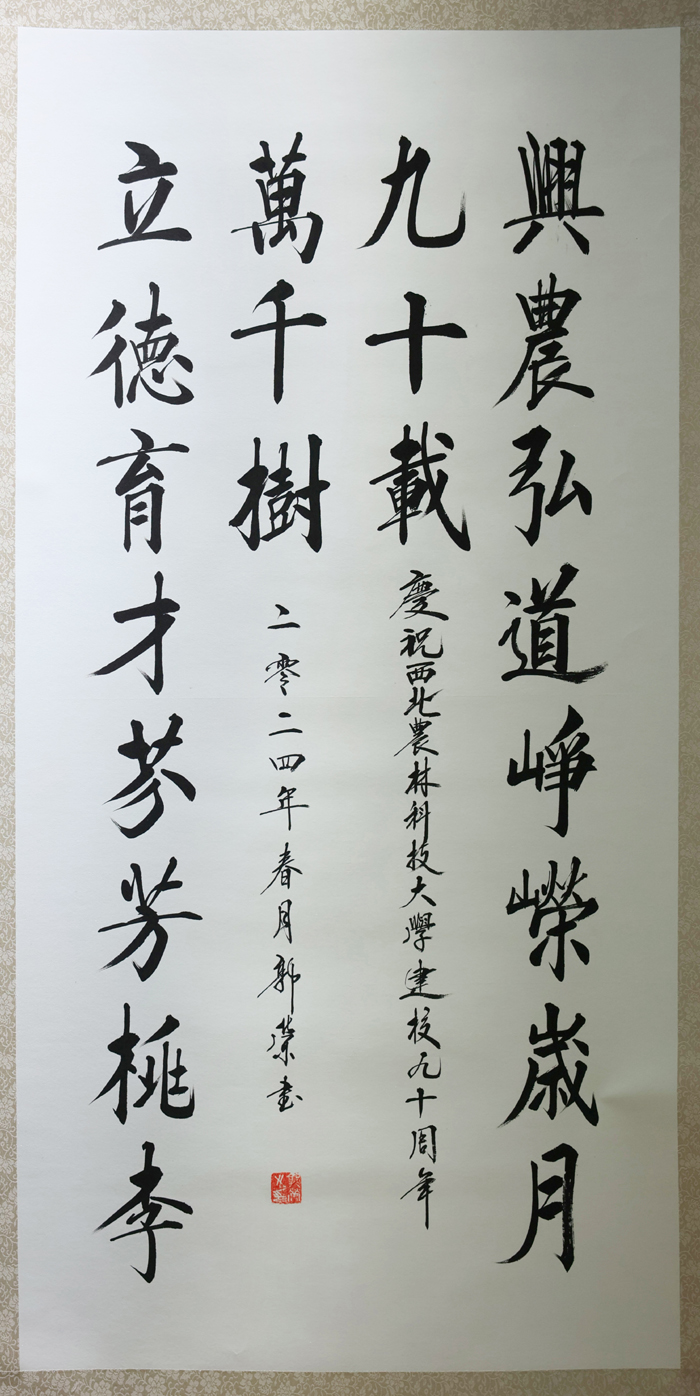 興農弘道崢嶸歲月
九十載
慶祝西北農林科技大學建校九十周年
萬千樹
二零二四年春月郭榮書
立德育才芬芳桃李